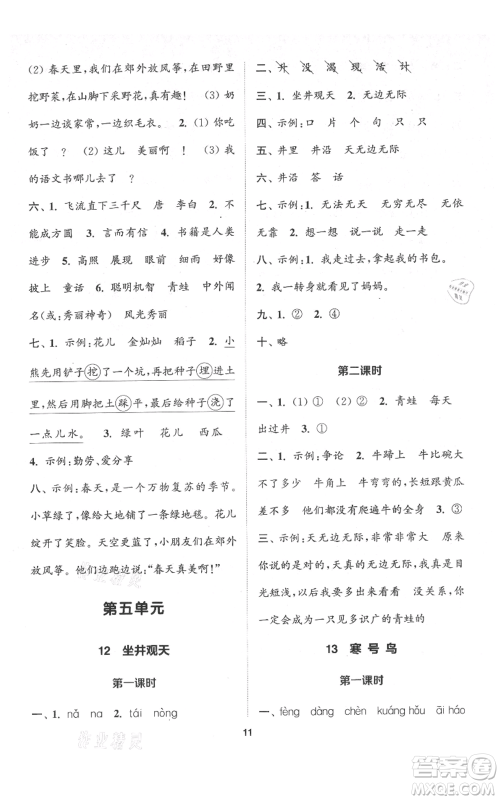 (2) 春天里,我们在郊外放风筝,在田野里
挖野菜,在山脚下采野花,真有趣! (3) 奶
奶们一边谈家常,一边织毛衣。 2. (1) 你吃
饭了 ? (2) 这儿 美丽 ! (3) 我
的语文书哪儿去了 ?
六、1. 飞流直下三千尺 唐 李白 2. 不
能成方圆 3. 4. 书籍是人类
进步 5. 高照 展现 眼前 细雨 好像
披上 童话 6. 聪明机智 青蛙 雄伟壮
阔(或:秀丽神奇) 风光秀丽
七、1. 示例:花朵 金灿灿 稻子 2. 小
熊先用铲子挖了一个坑,再把种子埋进土
里,然后用脚把土踩平,最后给种子浇了
一点儿水。 3. 绿叶 花儿 西瓜
4. 示例:勤劳、爱分享
八、示例:春天,是一个万物复苏的季节。
小草绿了,像给大地铺了一条绿毯。花儿
绽开了笑脸。天空更蓝了。我们在郊外
放风筝。他们边跑边说:“春天真美啊!”
第五单元
12 坐井观天
第一课时
一、1. nǎ na 2. tái nòng
二、升 没 渴 现 活 计
三、1. 坐井观天 2. 无边无际
四、示例:口 片 句 只 只
五、井里 井沿 无边无际
六、井沿 答 话
七、示例:1. 无法无天 无穷无尽 无忧
无虑 2. 想一想 说一说 试一试
八、示例:1. 我走过去,背走了我的书包。
2. 我一转身,忽然看见了妈妈。
九、1. ② 2. ④
十、略
第二课时
一、1. (1) ① (2) ① 2. 青蛙 每天
出过井
二、1. 示例:争论 2. 牛蹄上 牛不
大于 牛角上 牛弯弯的角 牛比碗大
不了多少 跟大黄
差不多 他们都没有爬遍牛的全身 3. ①
三、1. 无边无际 示例:非常非常大
2. 示例:你的话是错误的,天真的无边无际,你
目光短浅,所以看不到 没关系,我原谅
你,因为你是一只见多识广的青蛙的孩子
13 寒号鸟
第一课时
一、fèng dàng chèn kuáng hǒu āi háo
11